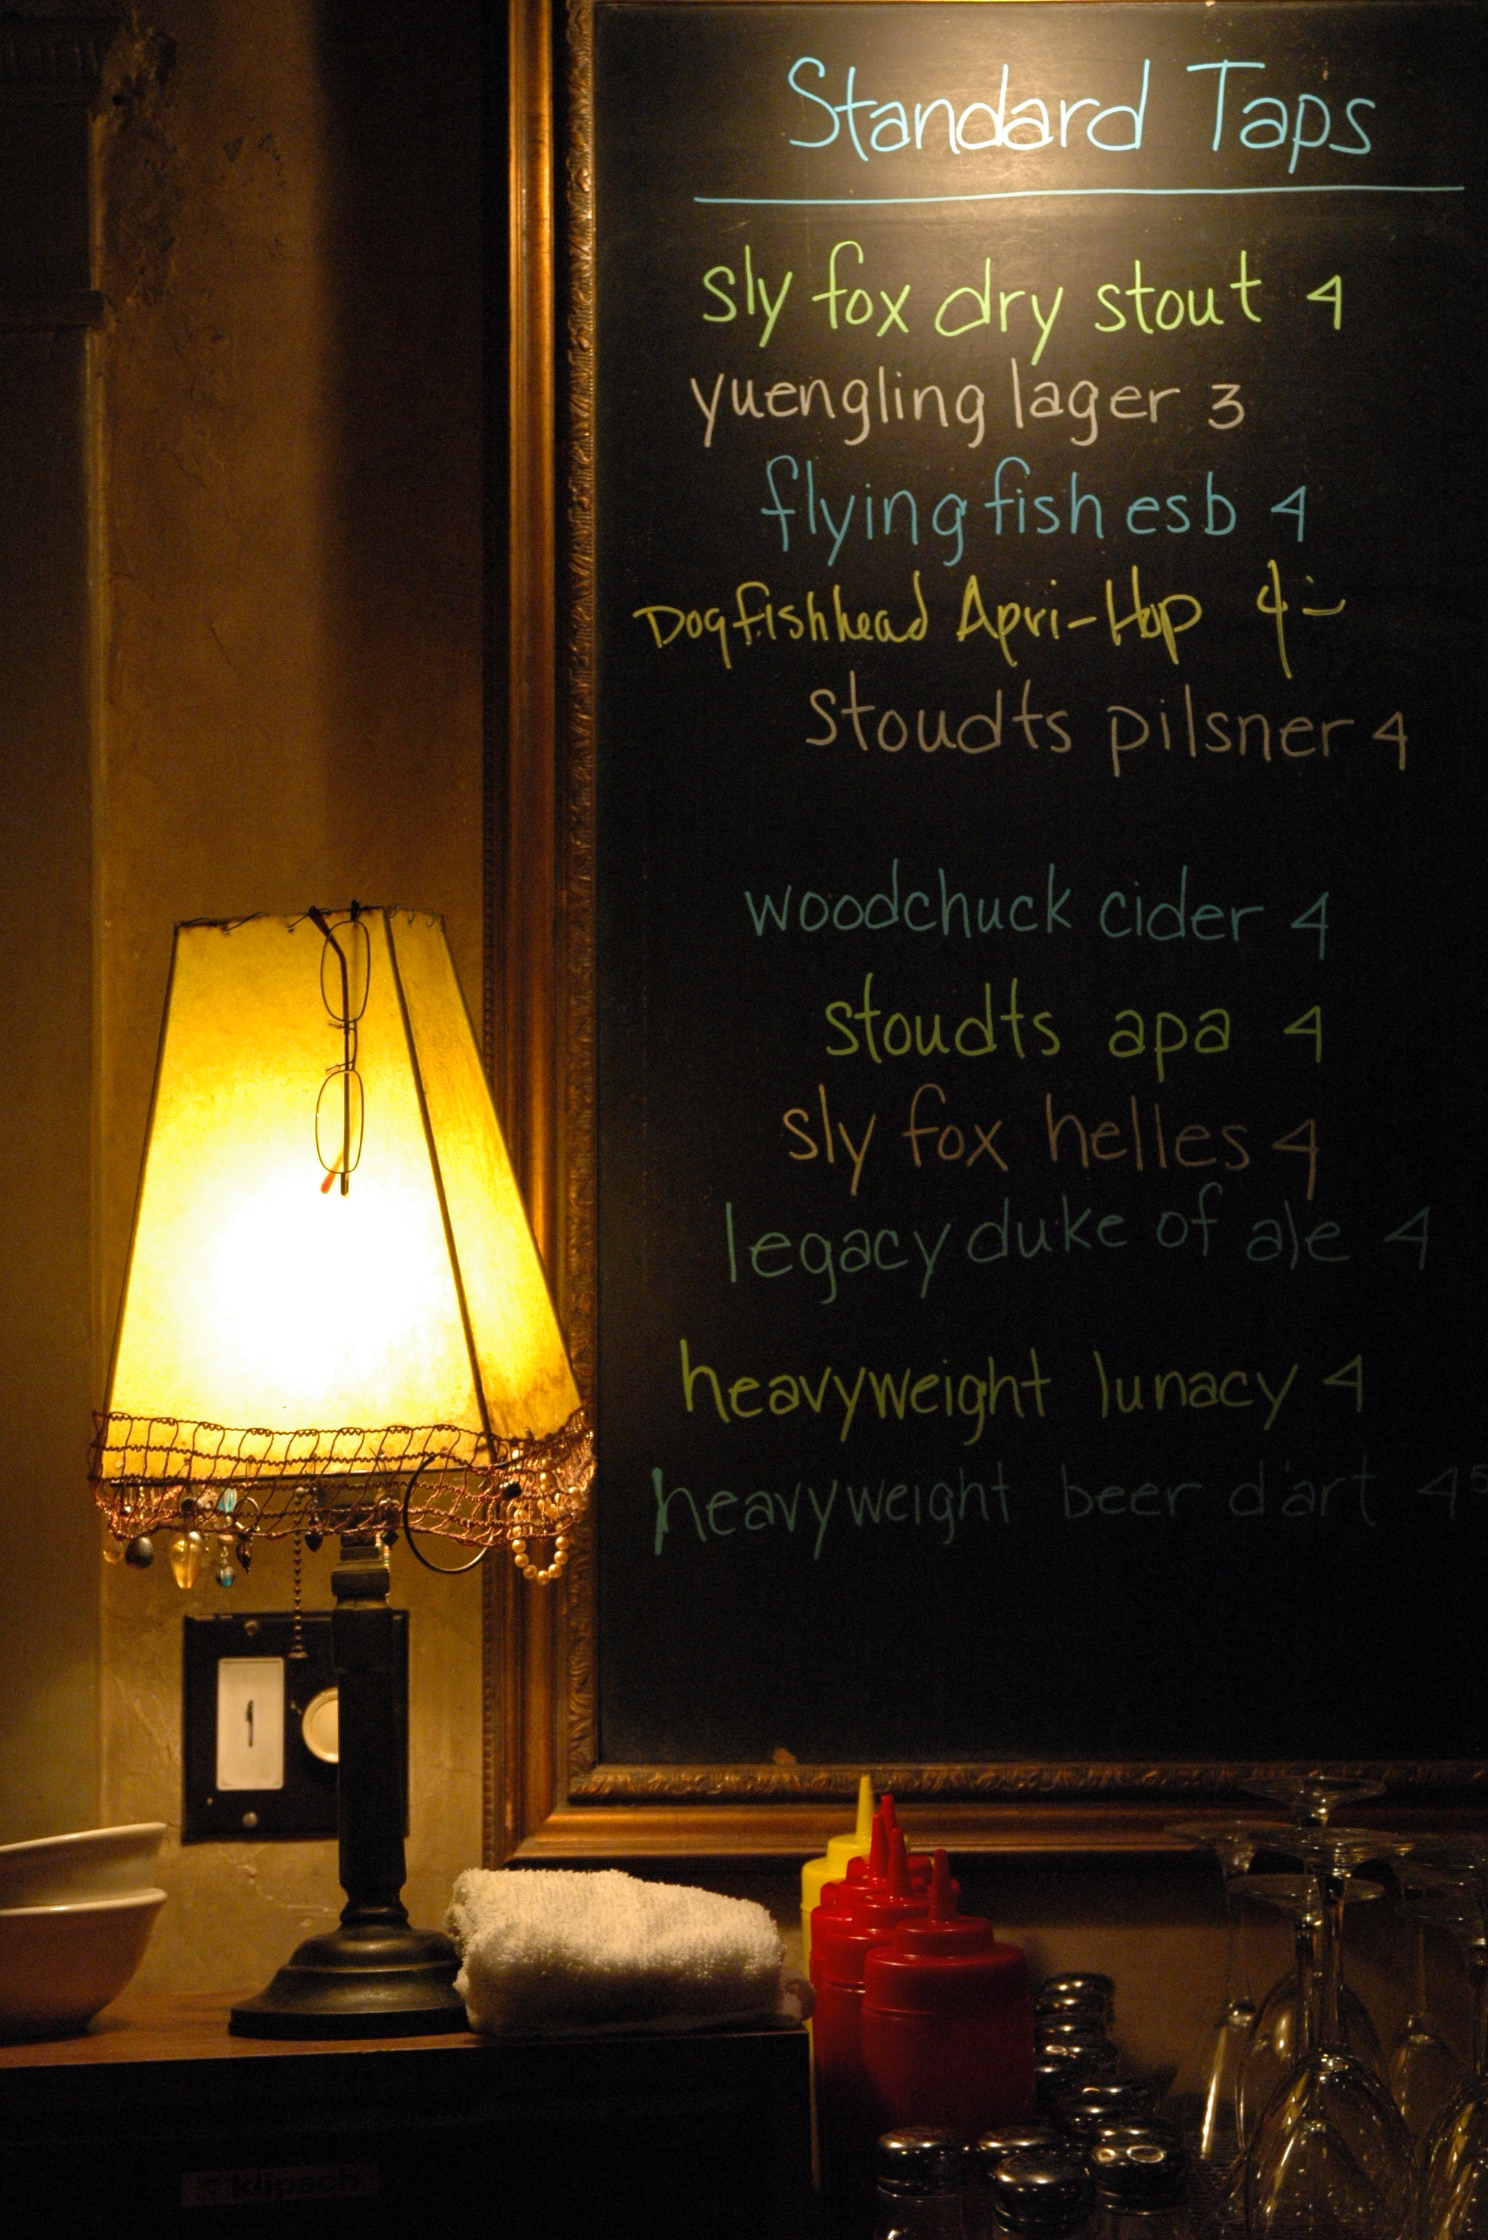 Standard Taps
sly fox dry stout 4
yuengling lager 3
flying fish esb 4
Dogfishhead Apri-Hop 4-
stoudts pilsner 4
woodchuck cider 4
stoudts apa 4
sly fox helles 4
legacy duke of ale 4
heavyweight lunacy 4
heavyweight beer d'art 4⁵
klipsch